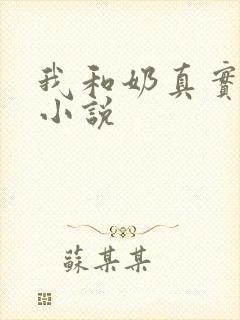 我和奶真實
小說
蘇某某